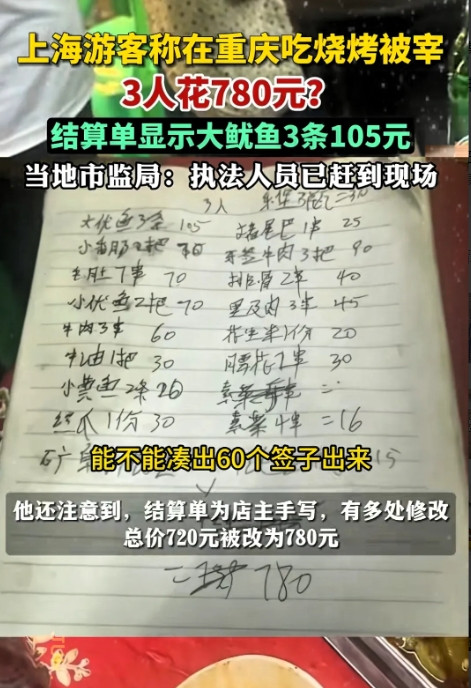 上海游客称在重庆吃烧烤被宰
3人花780元?
结算单显示大鱿鱼3条105元
当地市监局：执法人员已赶到现场
3人
大优鱼3条 105 猪尾巴1串 25
牙签牛肉3把 90
毛肚7串 70 排骨2串 40
小优鱼2把 70 里及肉3串 45
牛肉3串 60 花生米1份 20
牛油1把 30 腰花2串 30
小黄鱼2条 26
丝瓜1份 30 素菜4串 =16
矿 15
能不能凑出60个签子出来
他还注意到，结算单为店主手写，有多处修改
总价720元被改为780元
780